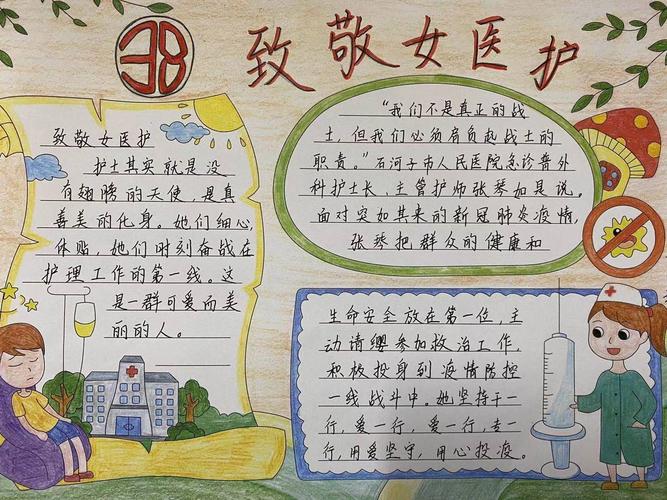 38 致敬女医护
致敬女医护
护士其实就是没
有翅膀的天使，是真
善美的化身。她们细心
体贴，她们时刻奋战在
护理工作的第一线。这
是一群可爱而美
丽的人。
“我们不是真正的战
士，但我们必须肩负起战士的
职责。”石河子市人民医院急诊普外
科护士长，主管护师张琴如是说。
面对突如其来的新冠肺炎疫情，
张琴把群众的健康和
生命安全放在第一位，主
动请缨参加救治工作，
积极投身到疫情防控
一线战斗中。她坚持干一
行，爱一行，爱一行，专一
行，用爱坚守，用心投疫。